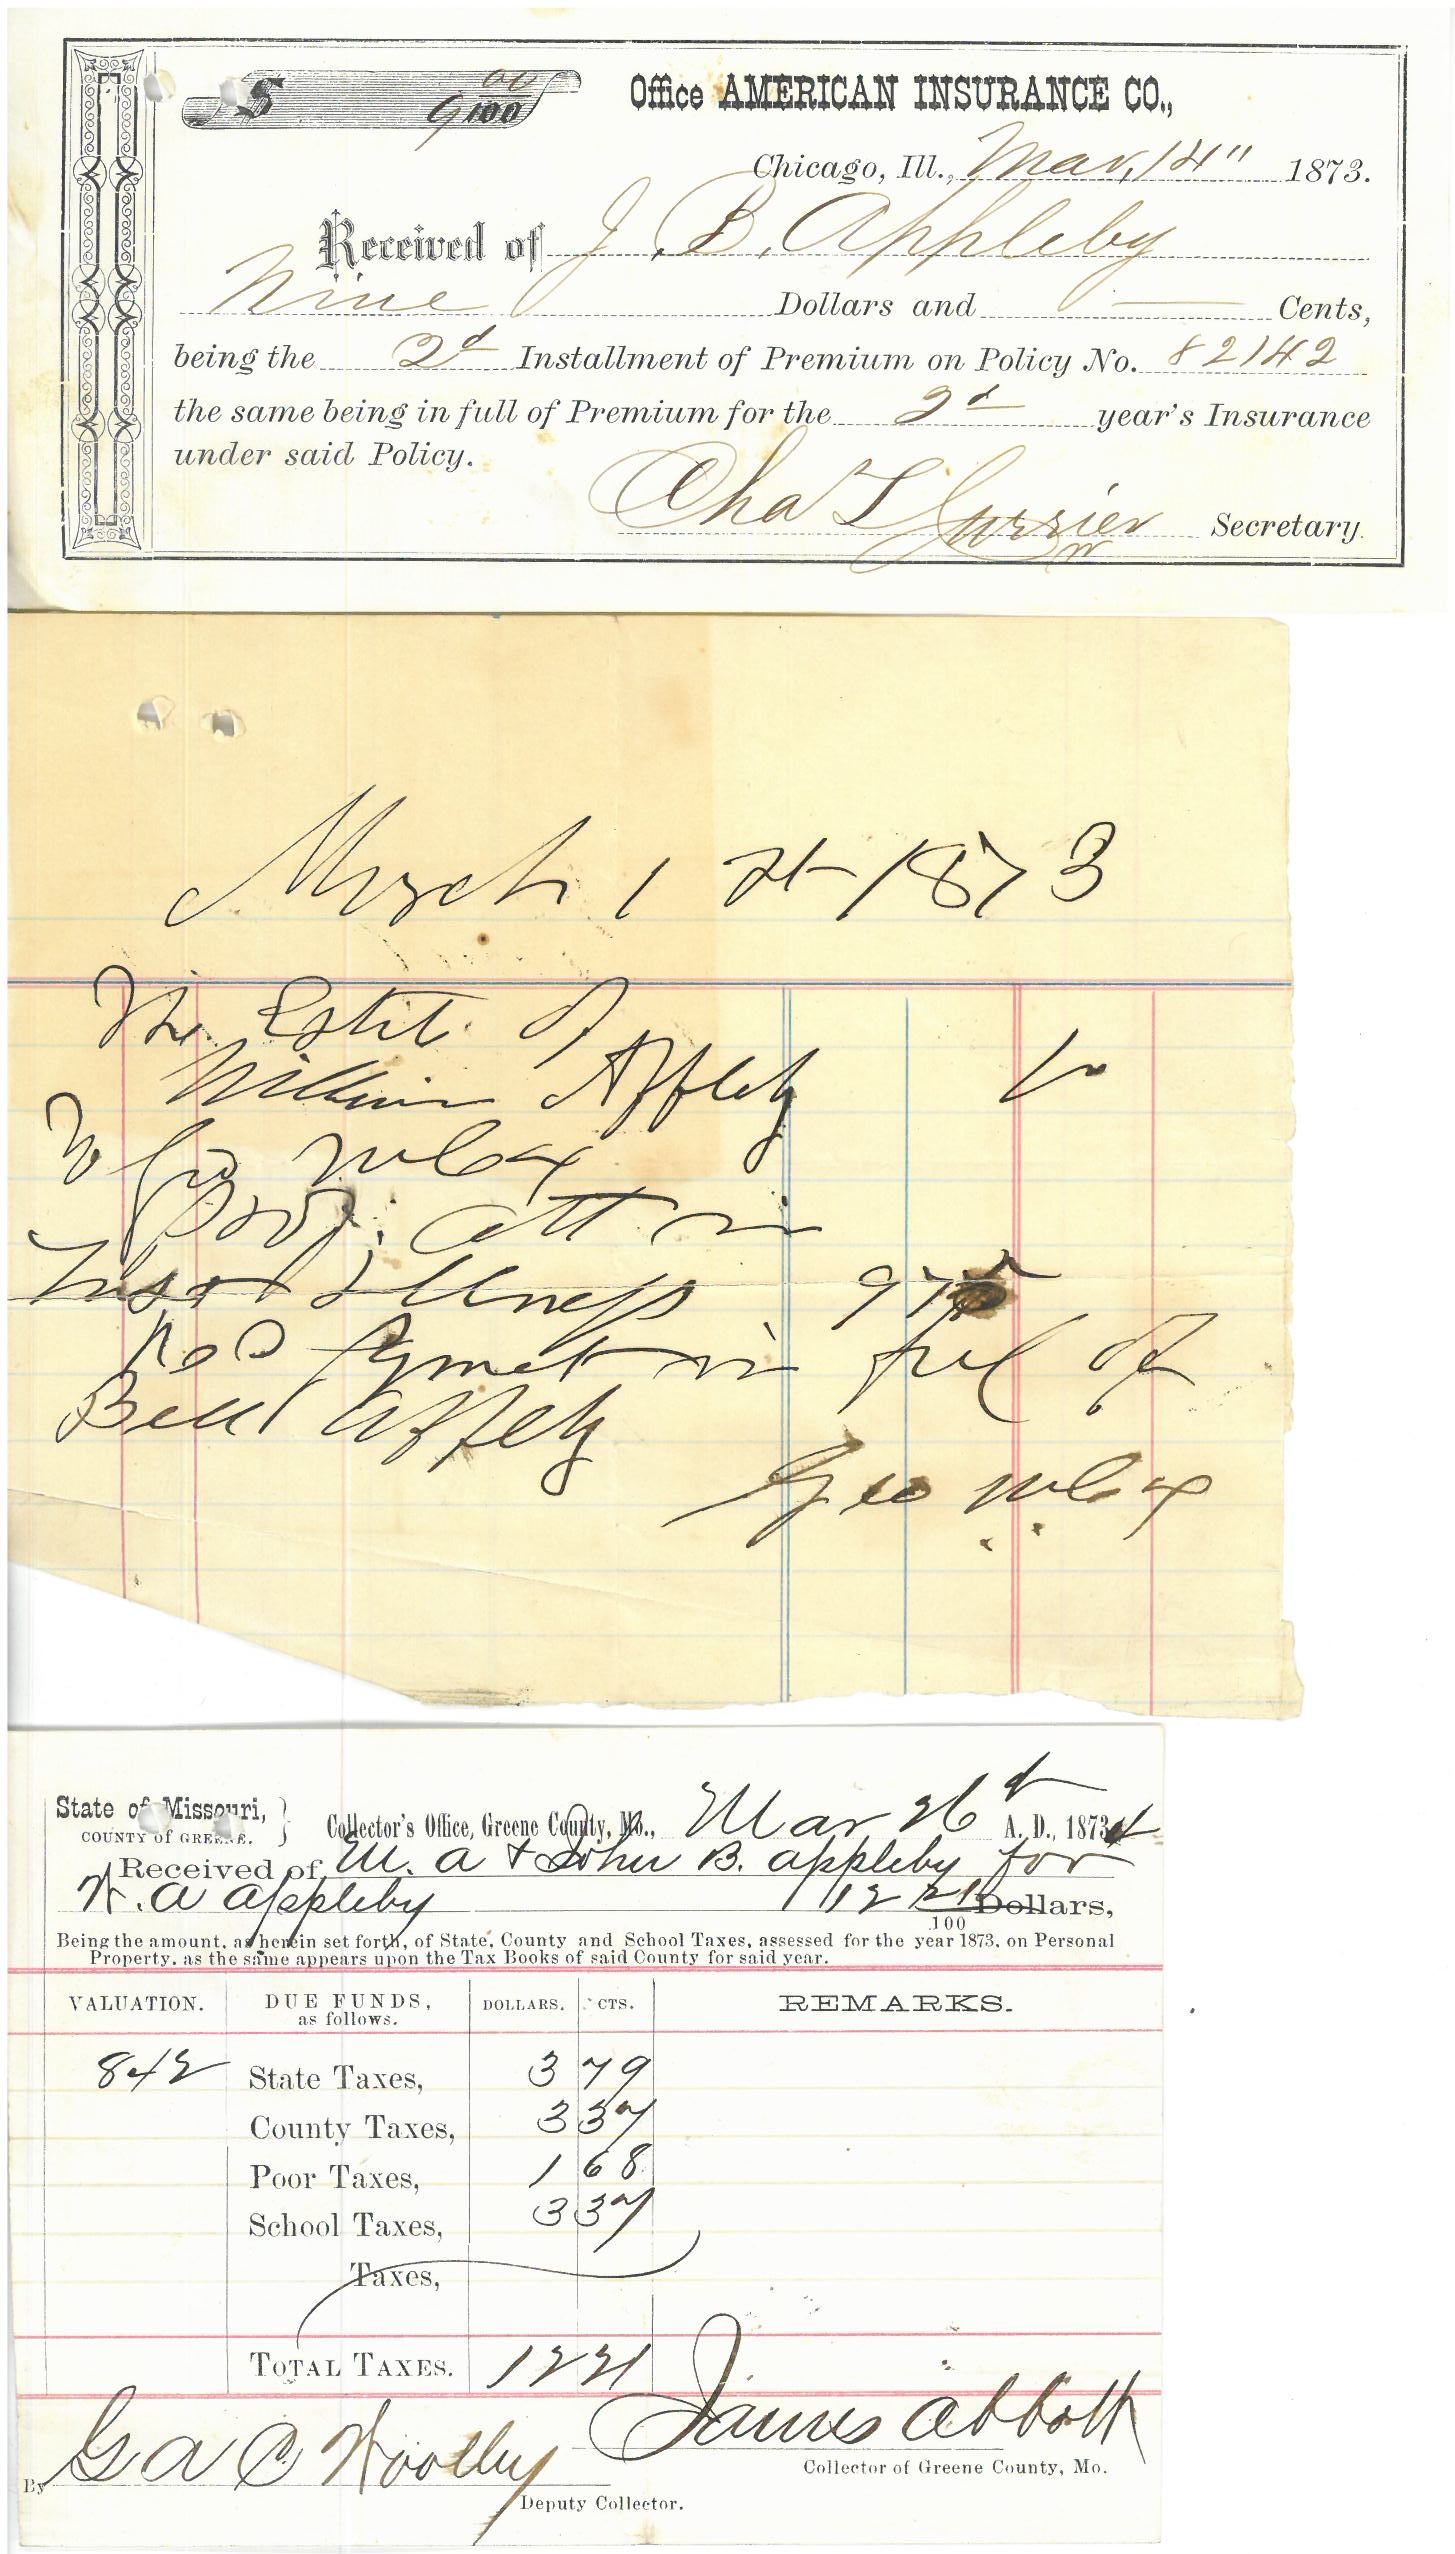 $ 9 00/100 Office AMERICAN INSURANCE CO.,
Chicago, Ill., Mar, 14" 1873.
Received of J. B. Appleby
Nine Dollars and — Cents,
being the 2d Installment of Premium on Policy No. 82142
the same being in full of Premium for the 2d year's Insurance
under said Policy.
Cha T Currier Secretary.
March 1st 1873
The Estate of
William Appleby
To Geo
Prof. Att in
Last Illness 975
Recd in full of
Appleby
Geo
State of Missouri, } Collector's Office, Greene County, Mo., Mar 26 A. D., 1873
COUNTY of GREENE.
Received of M. A & John B. Appleby for
W. A Appleby 12 21/100 Dollars,
Being the amount, as herein set forth, of State, County and School Taxes, assessed for the year 1873, on Personal
Property, as the same appears upon the Tax Books of said County for said year.
VALUATION. DUE FUNDS, as follows. DOLLARS. CTS. REMARKS.
842 State Taxes, 3 79
County Taxes, 3 37
Poor Taxes, 1 68
School Taxes, 3 37
Taxes,
TOTAL TAXES. 12 21
James Abbott
Collector of Greene County, Mo.
By G A C Woolley
Deputy Collector.